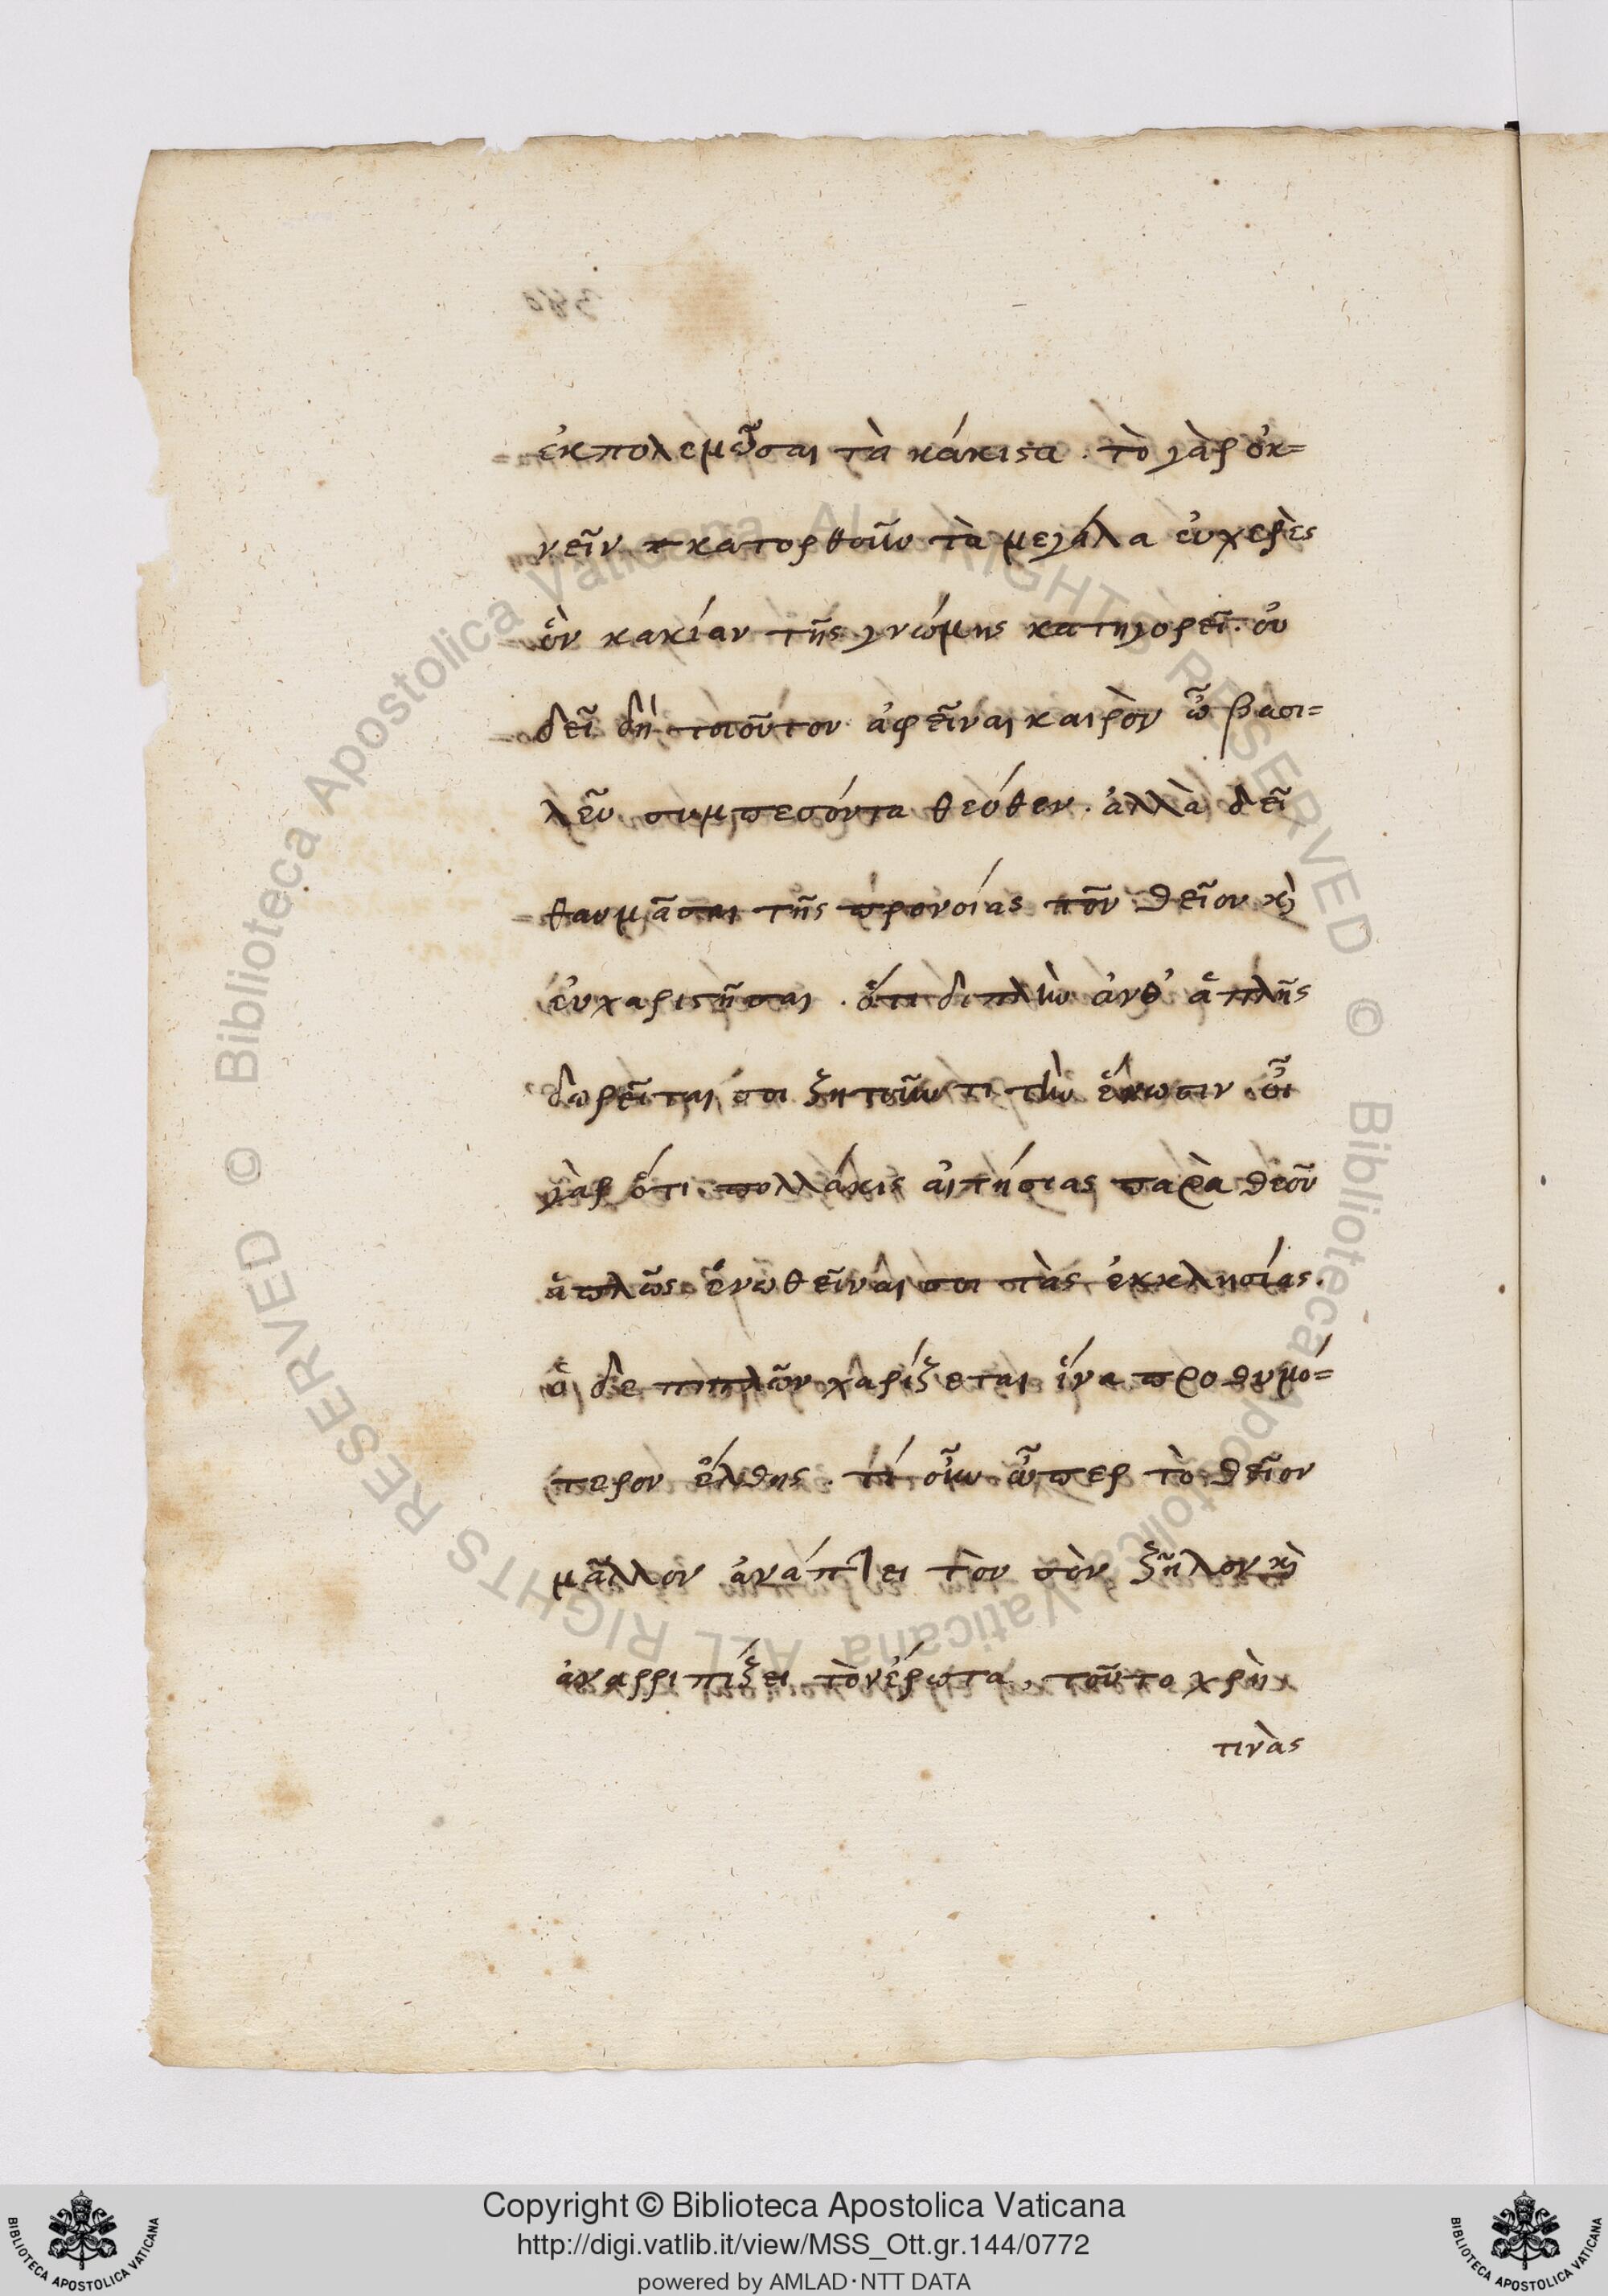 ἐκπολεμεῦσαι τὰ κάκιστα. τὸ γὰρ ὀκ=
νεῖν κατορθοῦν τὰ μεγάλα εὐχερὲς
ὂν κακίαν τῆς γνώμης κατηγορεῖ. οὐ
δεῖ δὴ τοιοῦτον ἀφεῖναι καιρὸν ὦ βασι=
λεῦ συμπεσόντα θεόθεν. ἀλλὰ δεῖ
θαυμᾶσαι τῆς προνοίας τὸ θεῖον καὶ
εὐχαριστῆσαι. ὅτι διπλῆν ἀνθ' ἁπλῆς
δωρεῖται σοι ζητοῦντι τὴν ἕνωσιν. οἶ
γὰρ ὅτι πολλάκις αἰτήσας παρὰ θεοῦ
ἁπλῶς ἑνωθεῖναι σοι τὰς ἐκκλησίας.
ὁ δε διπλῶν χαρίζεται ἵνα προθυμό=
τερον ἔλθης. τί οὖν ὦπερ τὸ θεῖον
μᾶλλον ἀνάπτει τὸν σὸν ζῆλον καὶ
ἀναρριπίζει τὸν ἔρωτα, τοῦτο χρὴ
τινὰς
Copyright © Biblioteca Apostolica Vaticana
http://digi.vatlib.it/view/MSS_Ott.gr.144/0772
powered by AMLAD·NTT DATA
BIBLIOTECA APOSTOLICA VATICANA
BIBLIOTECA APOSTOLICA VATICANA
© Biblioteca Apostolica Vaticana ALL RIGHTS RESERVED © Biblioteca Apostolica Vaticana ALL RIGHTS RESERVED